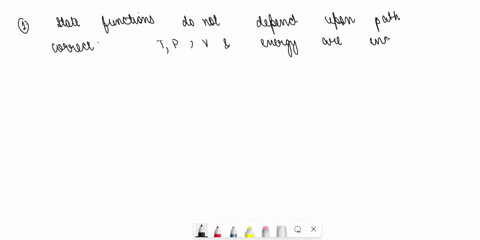 ① state functions do not depend upon path
correct. T, P, V & energy are